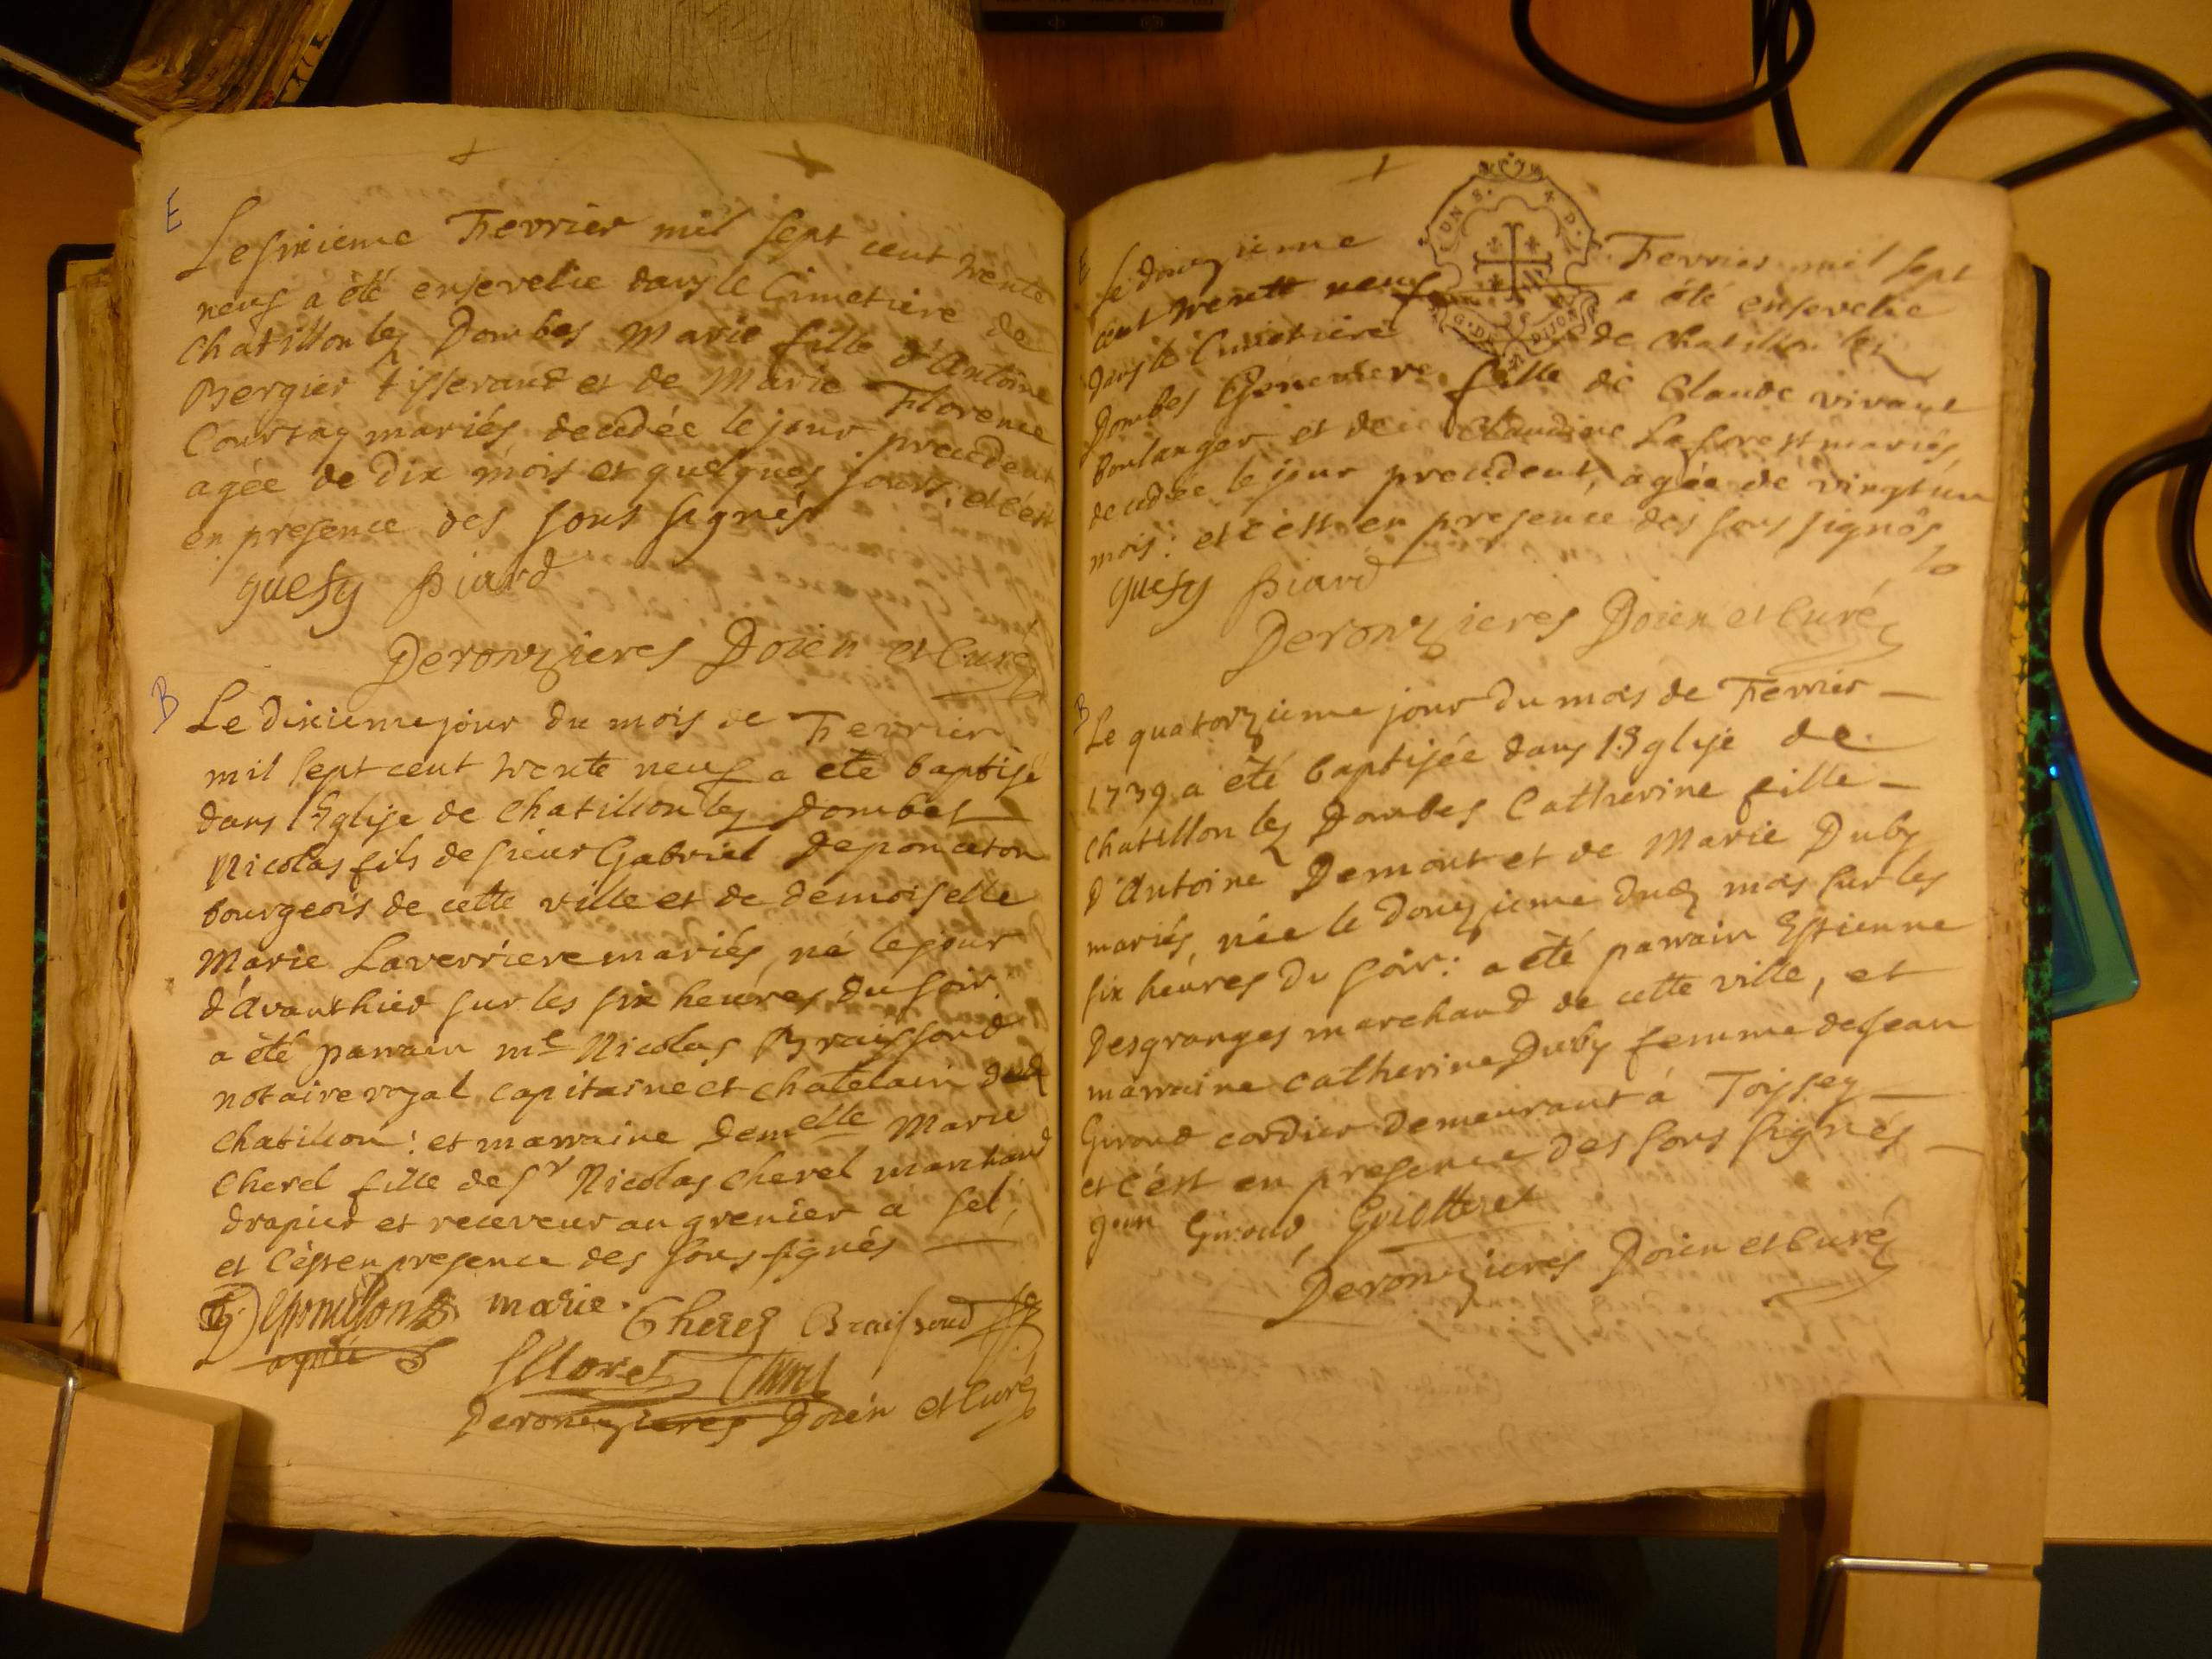 E
Le sixieme Fevrier mil sept cent trente
neuf a été ensevelie dans le Cimetiere de
Chatillon les Dombes Marie fille d'Antoine
Bergier tisserand et de Marie Florence
Courtay mariés decedée le jour precedent
agée de dix mois et quelques jours; et c'est
en presence des sous signés
guesy piard
Deronzieres Doien et Curé
B
Le dixieme jour du mois de Fevrier
mil sept cent trente neuf a été baptisé
dans l'Eglise de Chatillon les Dombes
Nicolas fils de sieur Gabriel Deponceton
bourgeois de cette ville et de demoiselle
Marie Laverriere mariés, né le jour
d'avanthier sur les six heures du soir
a été parrain me Nicolas Braissoud
notaire royal capitaine et chatelain dud
Chatillon: et marraine demelle Marie
Cherel fille de sr Nicolas Cherel marchand
drapier et receveur au grenier a sel;
et c'est en presence des sous signés
marie Cherel Braissoud
Deronzieres Doien et Curé
Le douzieme Fevrier mil sept
cent trente neuf a été ensevelie
dans le Cimetiere de Chatillon les
Dombes Genevieve fille de Claude vivant
Boulanger et de Claudine Laforest mariés
decedée le jour precedent, agée de vingt un
mois: et c'est en presence des sous signés
guesy piard
Deronzieres Doien et Curé
B
Le quatorzieme jour du mois de Fevrier
1739 a été baptisée dans l'Eglise de
Chatillon les Dombes Catherine fille
d'Antoine Demont et de Marie Duby
mariés, née le douzieme dud mois sur les
six heures du soir: a été parrain Estienne
Desgranges marchand de cette ville, et
marraine Catherine Duby femme de Jean
Giroud cordier demeurant à Toissey
et c'est en presence des sous signés
Jean Giroud, Guillteret
Deronzieres Doien et Curé